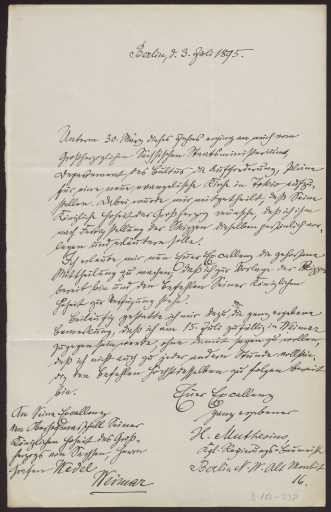 Berlin, d. 3. Juli 1895.
Unterm 30. März dieses Jahres erging an mich vom
Großherzoglichen Sächsischen Staatsministerium,
Departement des Cultus, die Aufforderung, Pläne
für eine neue evangelische Kirche in Tokio aufzu-
stellen. Dabei wurde mir mitgetheilt, daß Seine
Königliche Hoheit der Großherzog wünsche, daß ich ihm
nach Fertigstellung der Skizzen dieselben persönlich vor-
legen und erläutern solle.
Ich erlaube mir nun Euer Excellenz die gehorsame
Mittheilung zu machen, daß ich zur Vorlage der Skizzen
bereit bin und den Befehlen Seiner Königlichen
Hoheit zur Verfügung stehe.
Beiläufig gestatte ich mir dazu die ganz ergebene
Bemerkung, daß ich am 15. Juli zufällig in Weimar
zugegen sein werde, ohne damit sagen zu wollen,
daß ich nicht auch zu jeder anderen Stunde
den Befehlen Höchstdesselben zu folgen bereit
bin.
Euer Excellenz
ganz ergebener
H. Muthesius,
Kgl. Regierungs-Baumeister
Berlin N. W. Alt Moabit
16.
An Seine Excellenz
den Oberhofmarschall Seiner
Königlichen Hoheit des Groß-
herzogs von Sachsen, Herrn
Grafen Wedel
Weimar